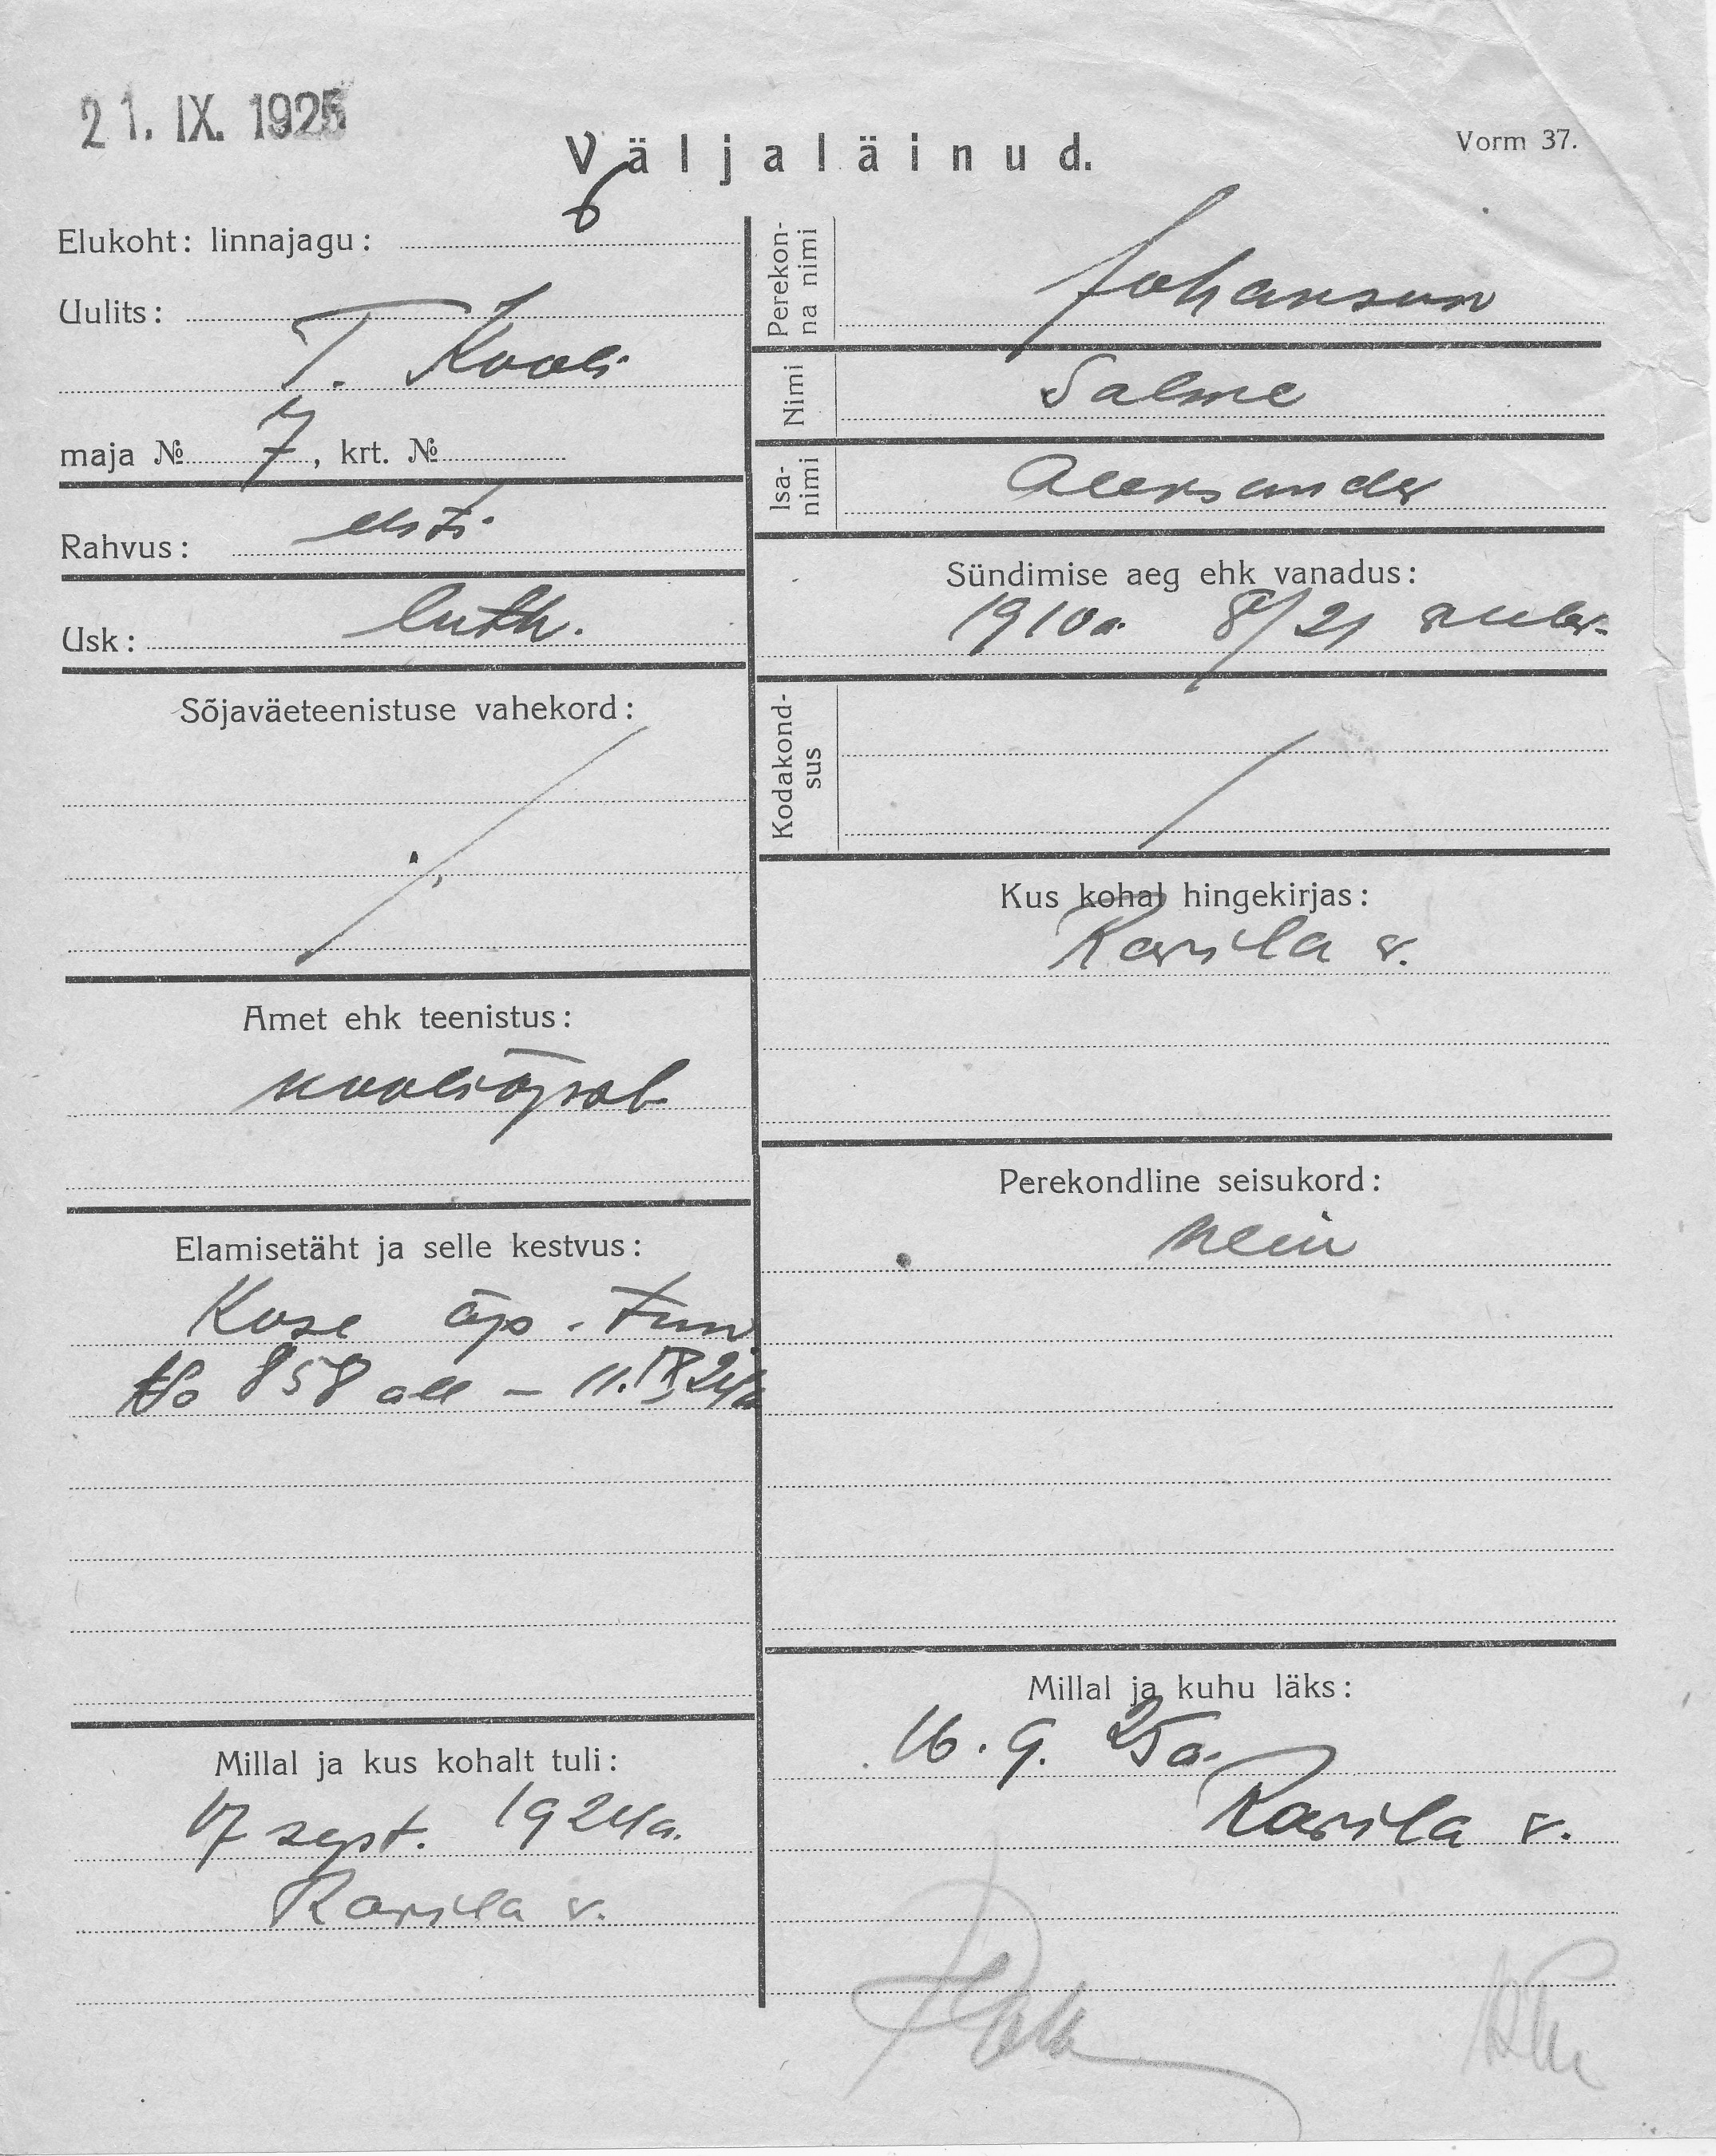 21. IX. 1925
Väljaläinud.
Vorm 37.
Elukoht: linnajagu: 6
Uulits:
T. Kooli
maja № 7, krt. №
Rahvus: eesti
Usk: luth.
Sõjaväeteenistuse vahekord:
Amet ehk teenistus:
kooliõpil.
Elamisetäht ja selle kestvus:
Kose õp. tun
No 858 all – 11.IX 24a
Millal ja kus kohalt tuli:
17 sept. 1924a.
Ravila v.
Perekon-
na nimi
Johanson
Nimi
Salme
Isa-
nimi
Aleksander
Sündimise aeg ehk vanadus:
1910a. 8/21
Kodakond-
sus
Kus kohal hingekirjas:
Ravila v.
Perekondline seisukord:
neiu
Millal ja kuhu läks:
16. 9. 25a.
Ravila v.